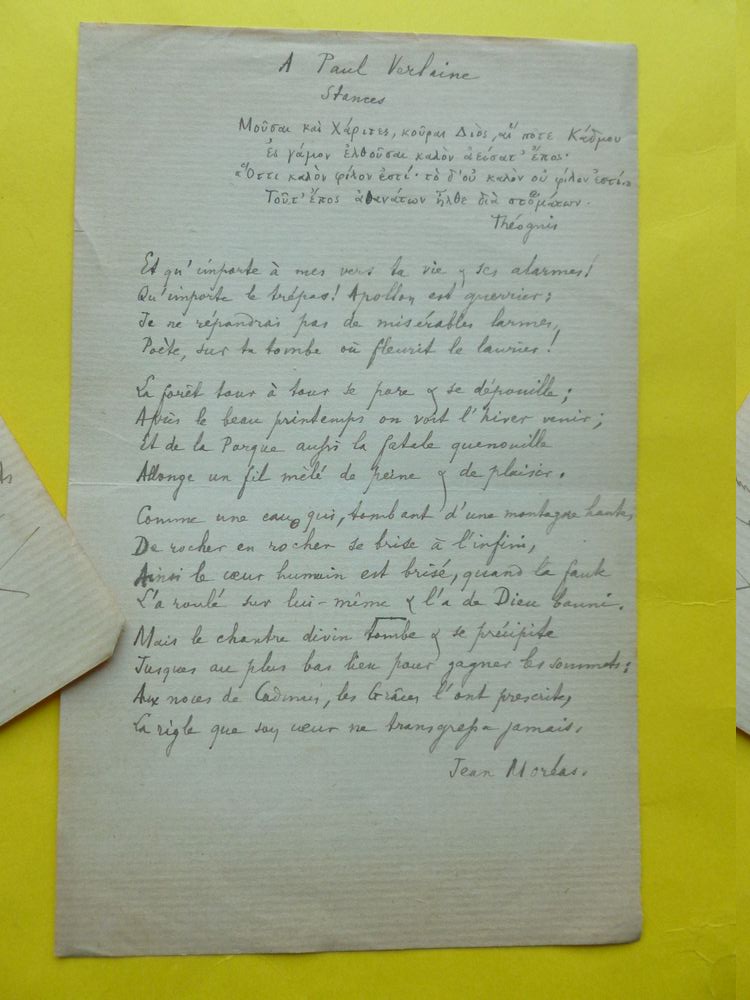 A Paul Verlaine
Stances
Μοῦσαι καὶ Χάριτες, κοῦραι Διὸς, αἵ ποτε Κάδμου
ἐς γάμον ἐλθοῦσαι καλὸν ἀείσατ' ἔπος·
"Ὅττι καλὸν φίλον ἐστί· τὸ δ' οὐ καλὸν οὐ φίλον ἐστίν"
Τοῦτ' ἔπος ἀθανάτων ἦλθε διὰ στομάτων.
Théognis
Et qu'importe à mes vers ta vie & ses alarmes!
Qu'importe le trépas! Apollon est guerrier;
Je ne répandrai pas de misérables larmes,
Poète, sur ta tombe où fleurit le laurier!
La forêt tour à tour se pare & se dépouille;
Après le beau printemps on voit l'hiver venir;
Et de la Parque aussi la fatale quenouille
Allonge un fil mêlé de peine & de plaisir.
Comme une eau qui, tombant d'une montagne haute,
De rocher en rocher se brise à l'infini,
Ainsi le cœur humain est brisé, quand la faute
L'a roulé sur lui-même & l'a de Dieu banni.
Mais le chantre divin tombe & se précipite
Jusques au plus bas lieu pour gagner les sommets:
Aux noces de Cadmus, les Grâces l'ont prescrite,
La règle que son cœur ne transgressa jamais.
Jean Moréas.